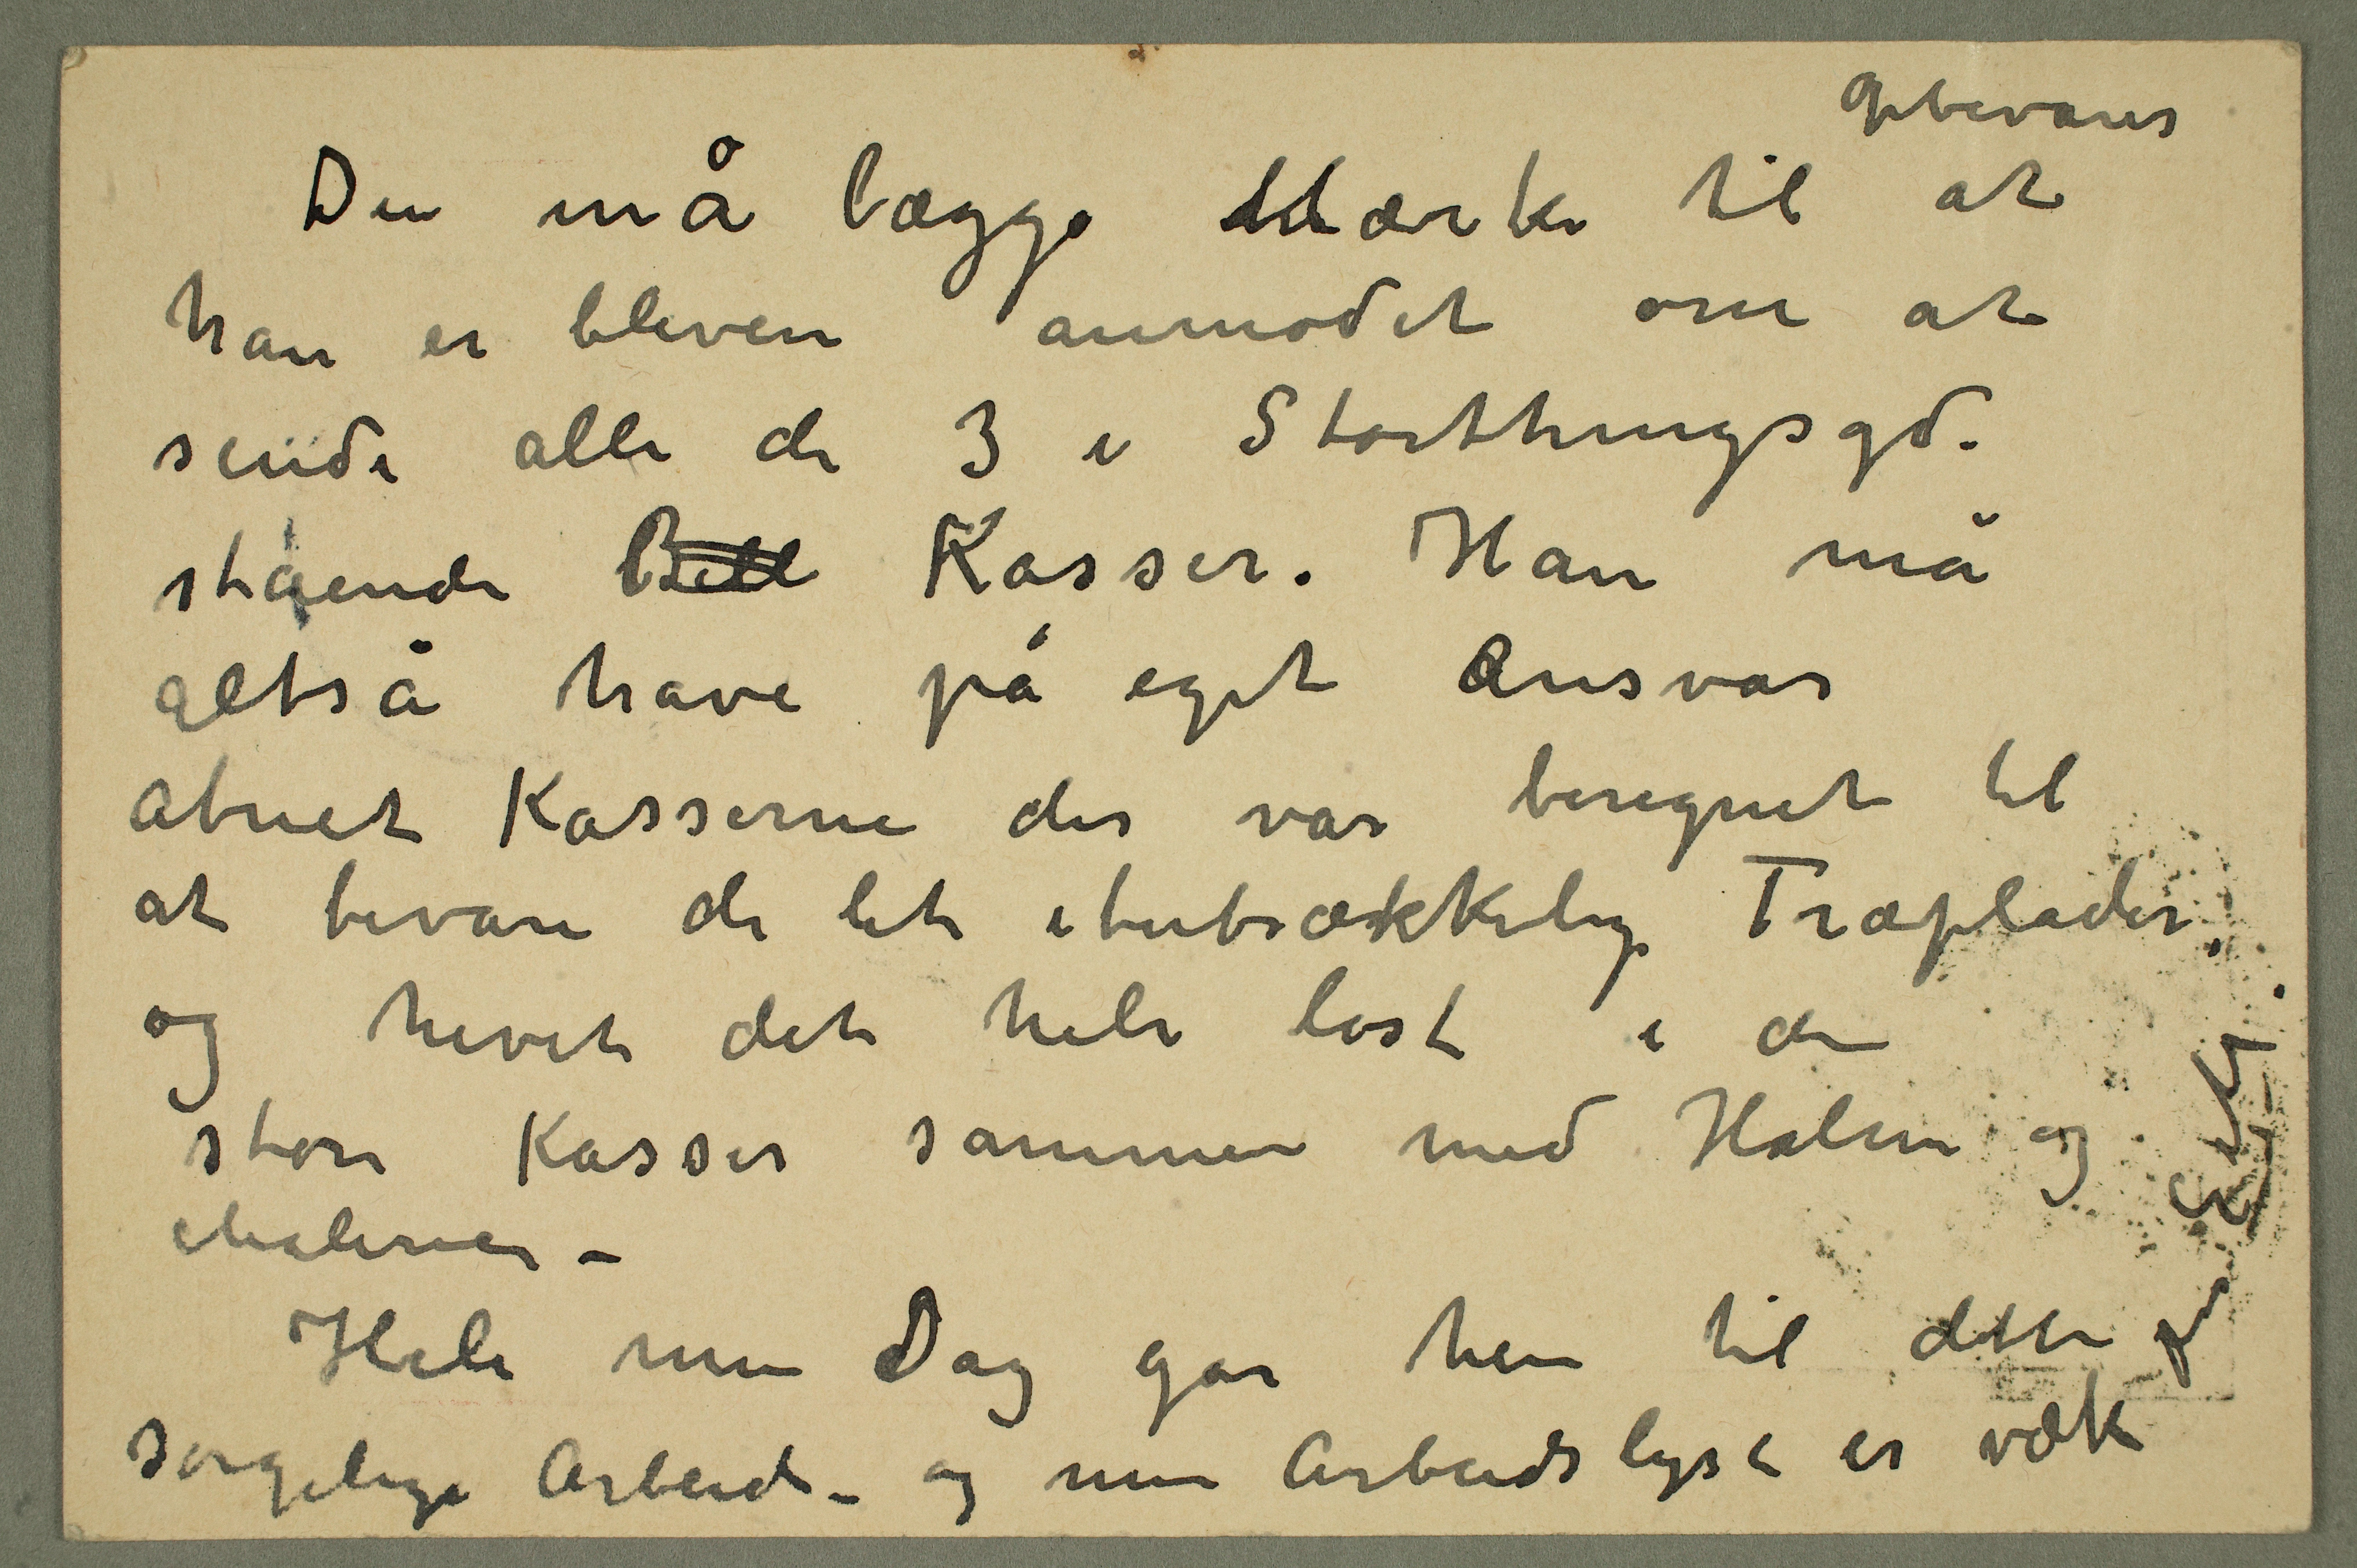 opbevares
Du må lægge Mærke til at
han er bleven anmodet om at
sende alle de 3 i Storthingsgd.
stående Bill Kasser. Han må
altså have på eget Ansvar
åbnet Kasserne der var beregnet til
at bevare de let itubrækkelige Træplader.
og hevet det hele løst i de
store Kasser sammen med Halm og
Malerier –
Hele min Dag går hen til dette
sørgelige Arbeide – og min Arbeidslyst er væk